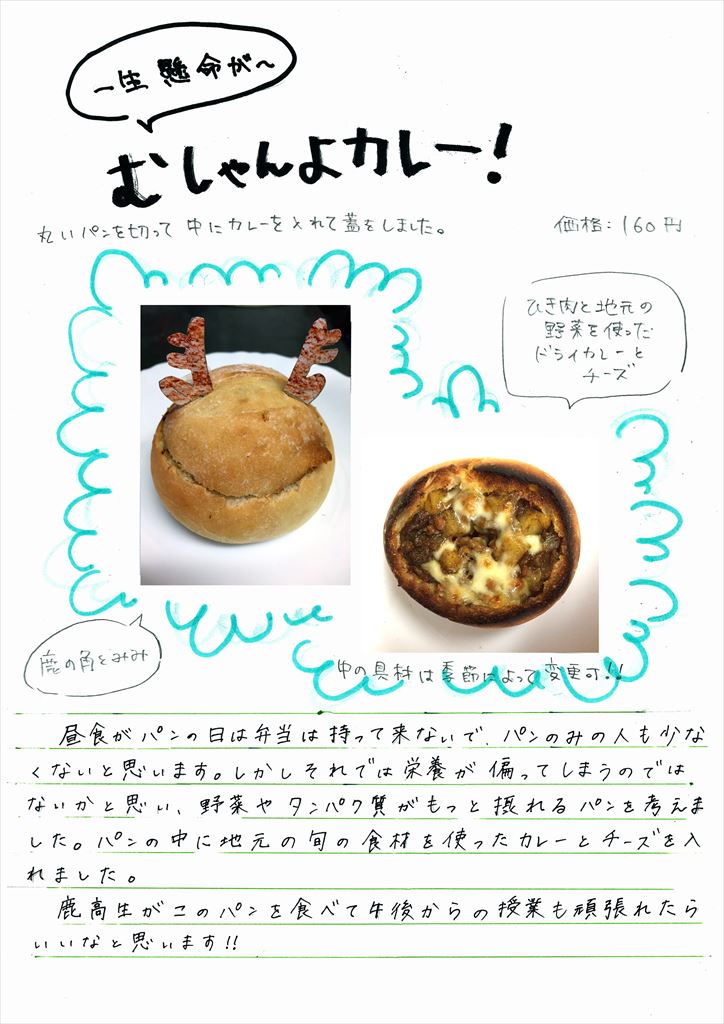 一生懸命が〜
むしゃんよカレー!
丸いパンを切って中にカレーを入れて蓋をしました。
価格：160円
ひき肉と地元の
野菜を使った
ドライカレーと
チーズ
鹿の角とみみ
中の具材は季節によって変更可!!
昼食がパンの日は弁当は持って来ないで、パンのみの人も少な
くないと思います。しかしそれでは栄養が偏ってしまうのでは
ないかと思い、野菜やタンパク質がもっと摂れるパンを考えま
した。パンの中に地元の旬の食材を使ったカレーとチーズを入
れました。
鹿高生がこのパンを食べて午後からの授業も頑張れたら
いいなと思います!!